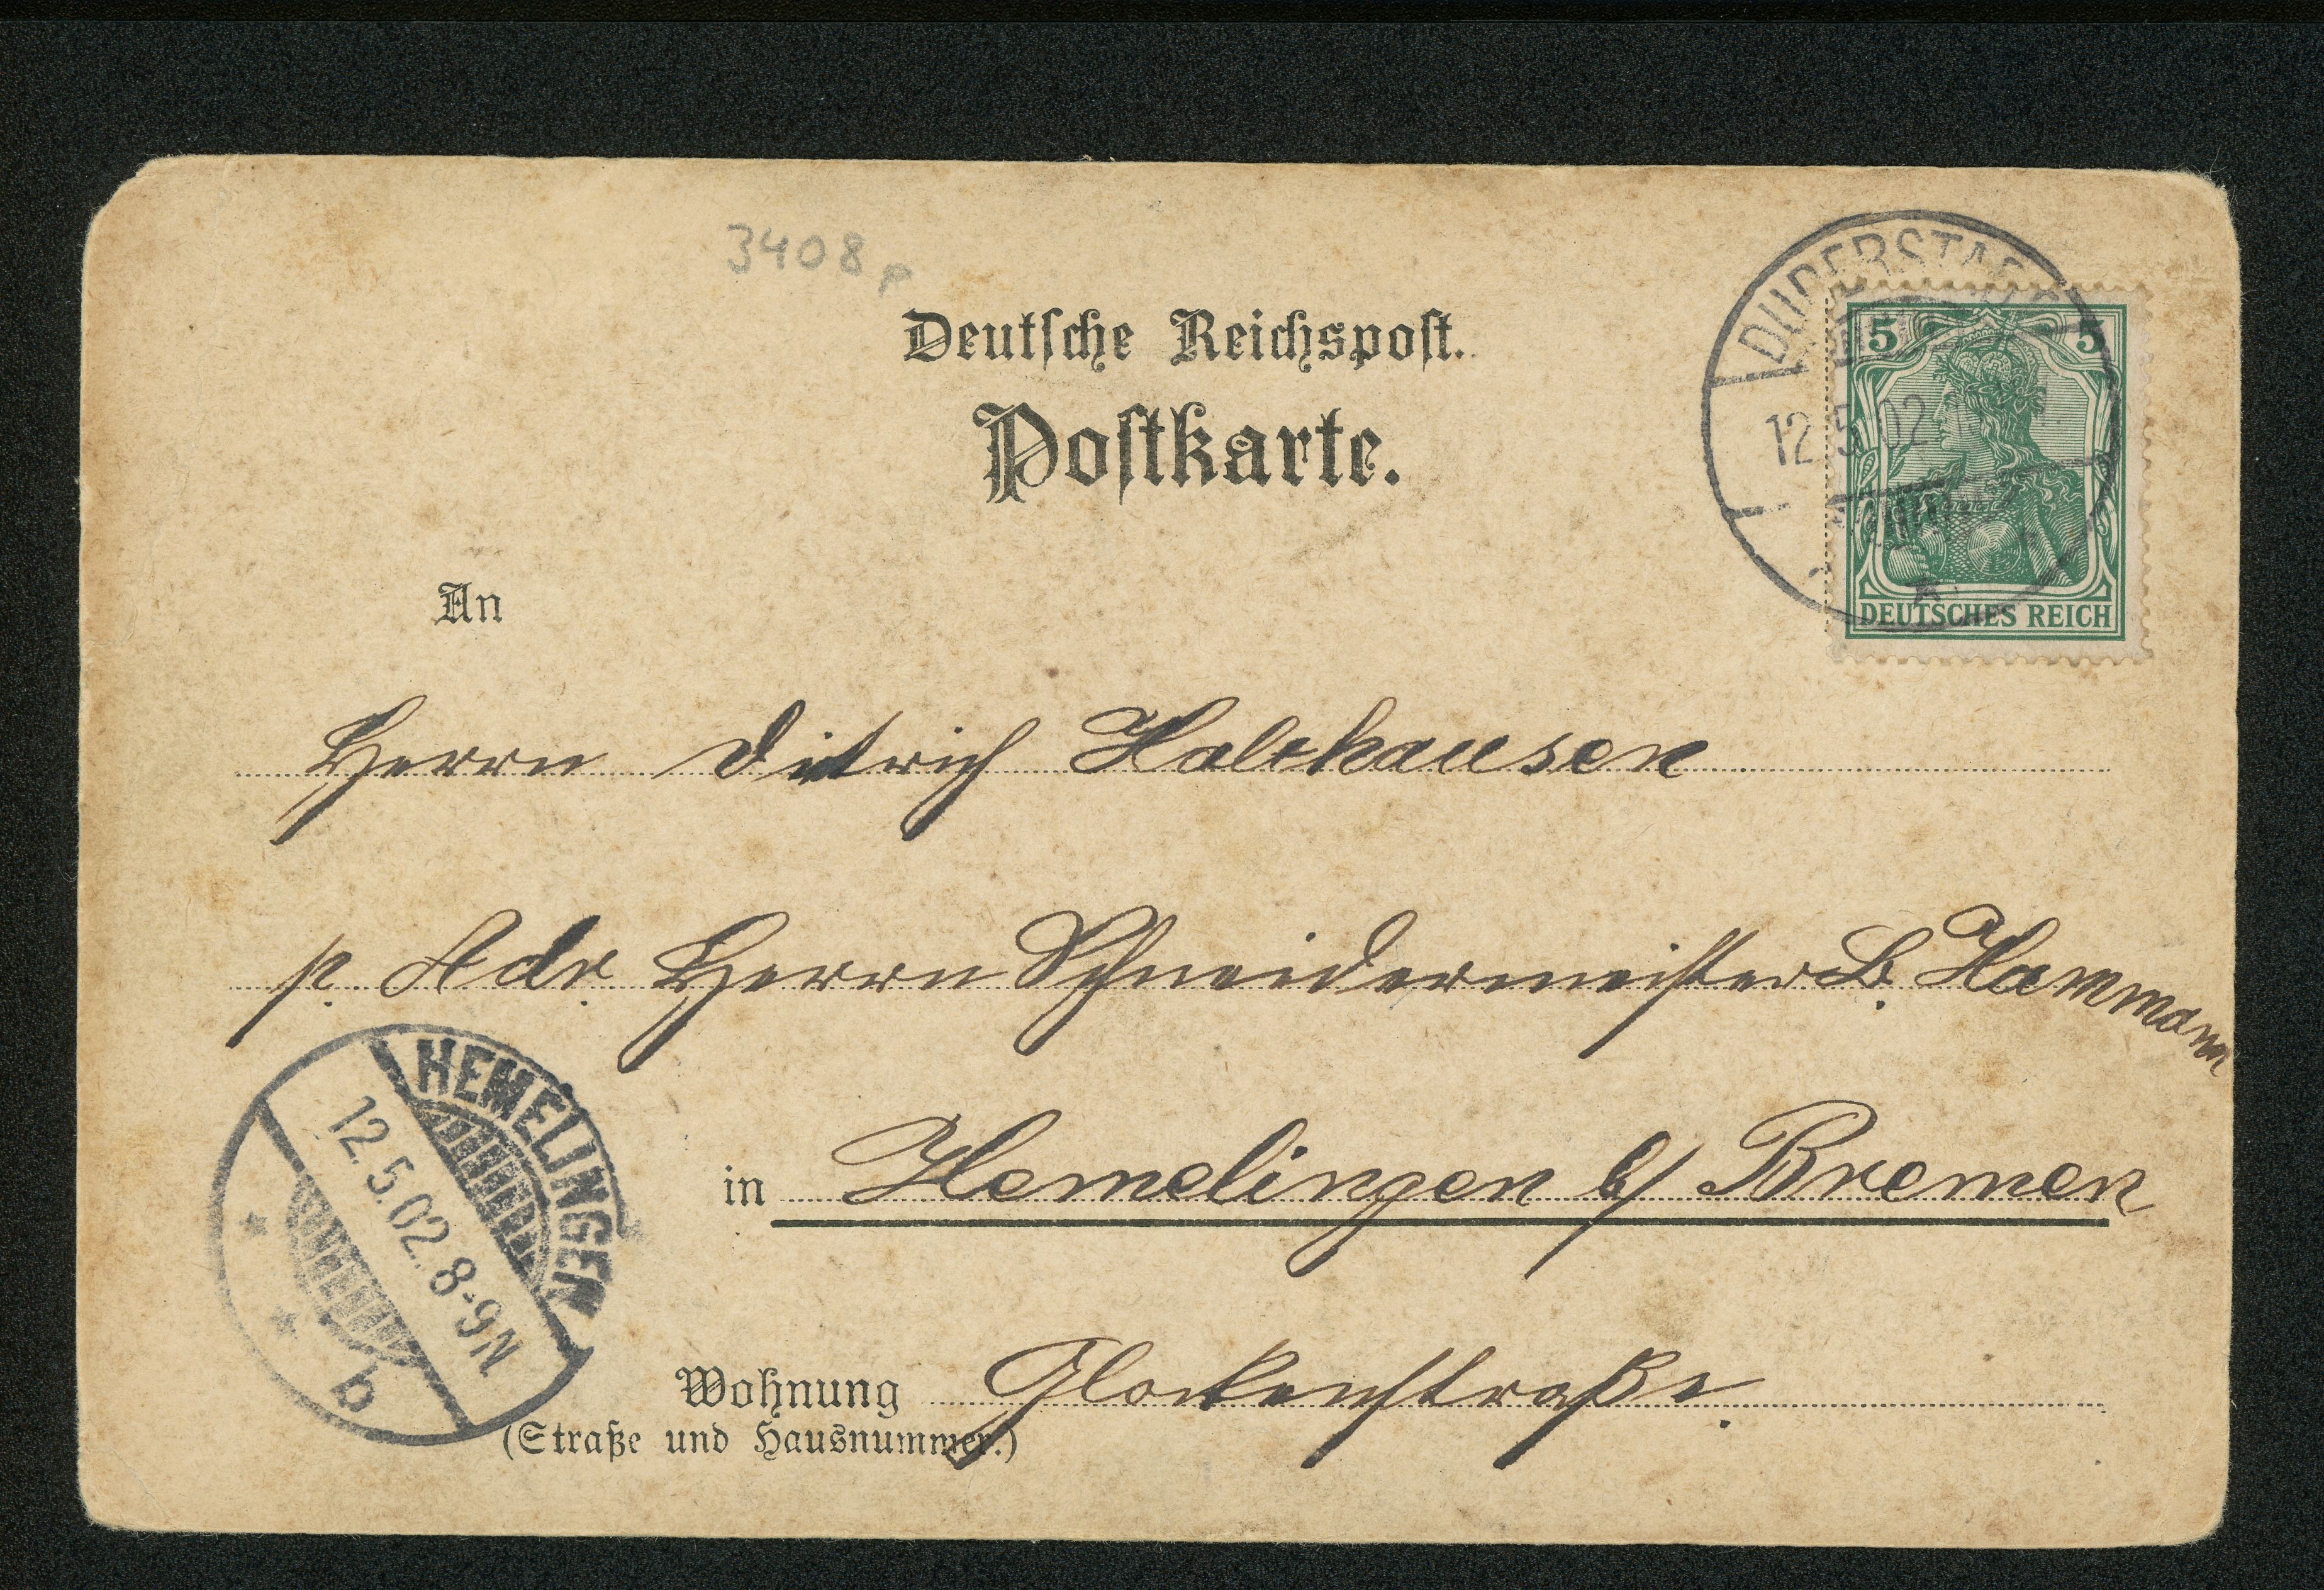 3408 p
Deutsche Reichspost.
Postkarte.
DUDERSTADT
12.5.02
5 5
DEUTSCHES REICH
An
Herrn Ditrich Holthausen
p. Adr. Herrn Schneidermeister B. Hammann
HEMELINGEN
12.5.02. 8-9N
b
in Hemelingen b/ Bremen
Wohnung Glockenstraße.
(Straße und Hausnummer.)